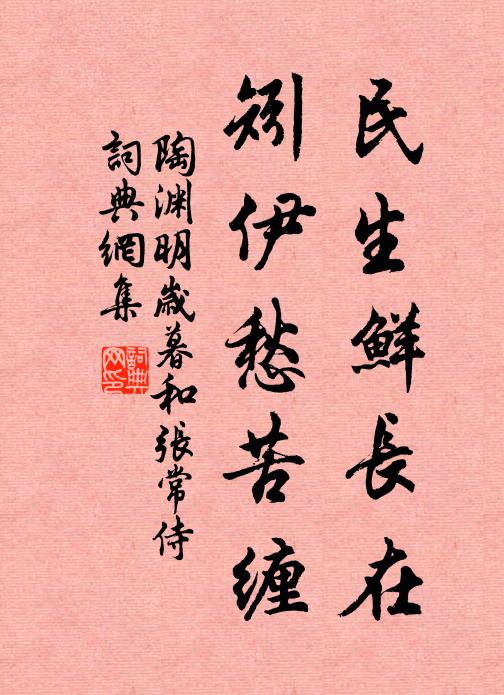 民生鮮長在
矧伊愁苦缠
陶渊明歲暮和張常侍
詞典網集
詞典網印